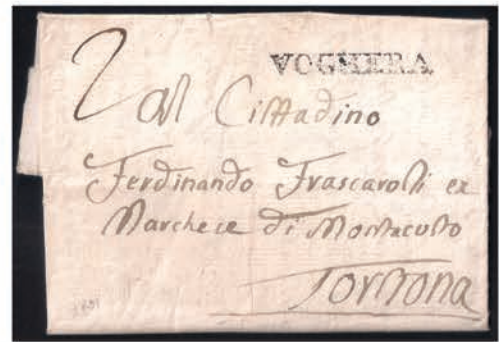 VOGHERA
2 al Cittadino
Ferdinando Frascaroli ex
Marchese di Montacuto
Tortona